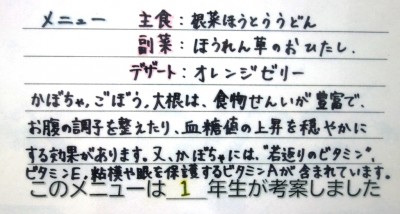 メニュー 主食:根菜ほうとううどん
副菜:ほうれん草のおひたし.
デザート:オレンジゼリー
かぼちゃ,ごぼう,大根は、食物せんいが豊富で、
お腹の調子を整えたり、血糖値の上昇を穏やかに
する効果があります。又、かぼちゃには、"若返りのビタミン",
ビタミンE,粘模や眼を保護するビタミンAが含まれています。
このメニューは 1 年生が考案しました